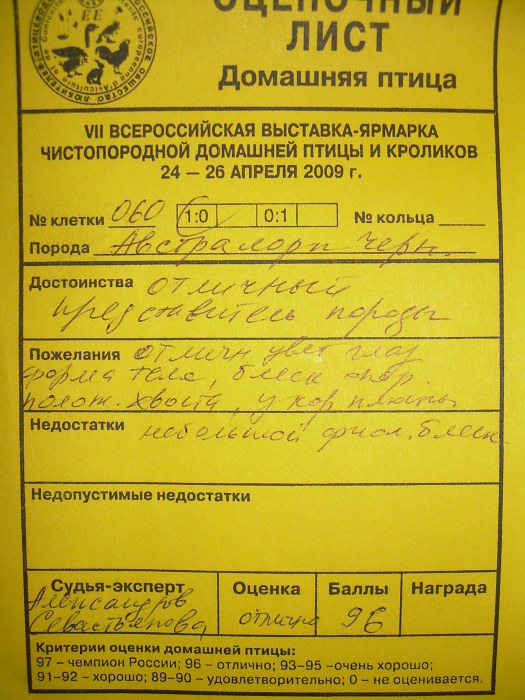 ОЦЕНОЧНЫЙ
ЛИСТ
Домашняя птица
VII ВСЕРОССИЙСКАЯ ВЫСТАВКА-ЯРМАРКА
ЧИСТОПОРОДНОЙ ДОМАШНЕЙ ПТИЦЫ И КРОЛИКОВ
24 — 26 АПРЕЛЯ 2009 г.
№ клетки 060 1:0 0:1 № кольца
Порода Австралорп черн.
Достоинства отличный
представитель породы
Пожелания отличн цвет глаз
форма тела, блеск опер.
полож. хвоста, укор плюсны
Недостатки небольшой фиол. блеск
Недопустимые недостатки
Судья-эксперт Оценка Баллы Награда
Александров
Севастьянова отлично 96
Критерии оценки домашней птицы:
97 – чемпион России; 96 – отлично; 93–95 –очень хорошо;
91–92 – хорошо; 89–90 – удовлетворительно; 0 – не оценивается.